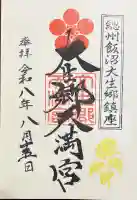 総州飯沼大生郷鎮座
大生郷天満宮
奉拝
令和八年八月五日